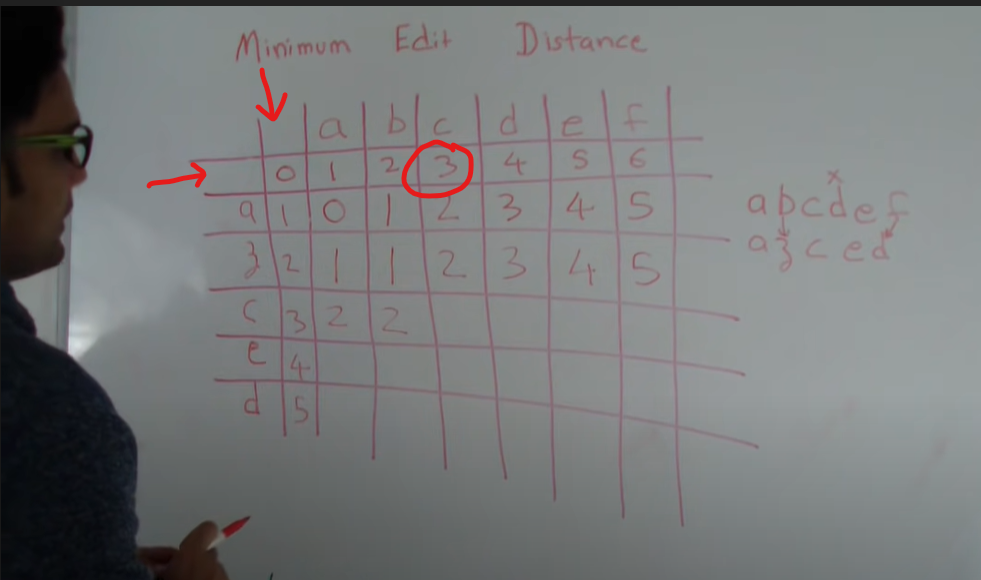 Minimum Edit Distance
a b c d e f
0 1 2 3 4 5 6
a 1 0 1 2 3 4 5
z 2 1 1 2 3 4 5
c 3 2 2
e 4
d 5
x
abcdef
azced